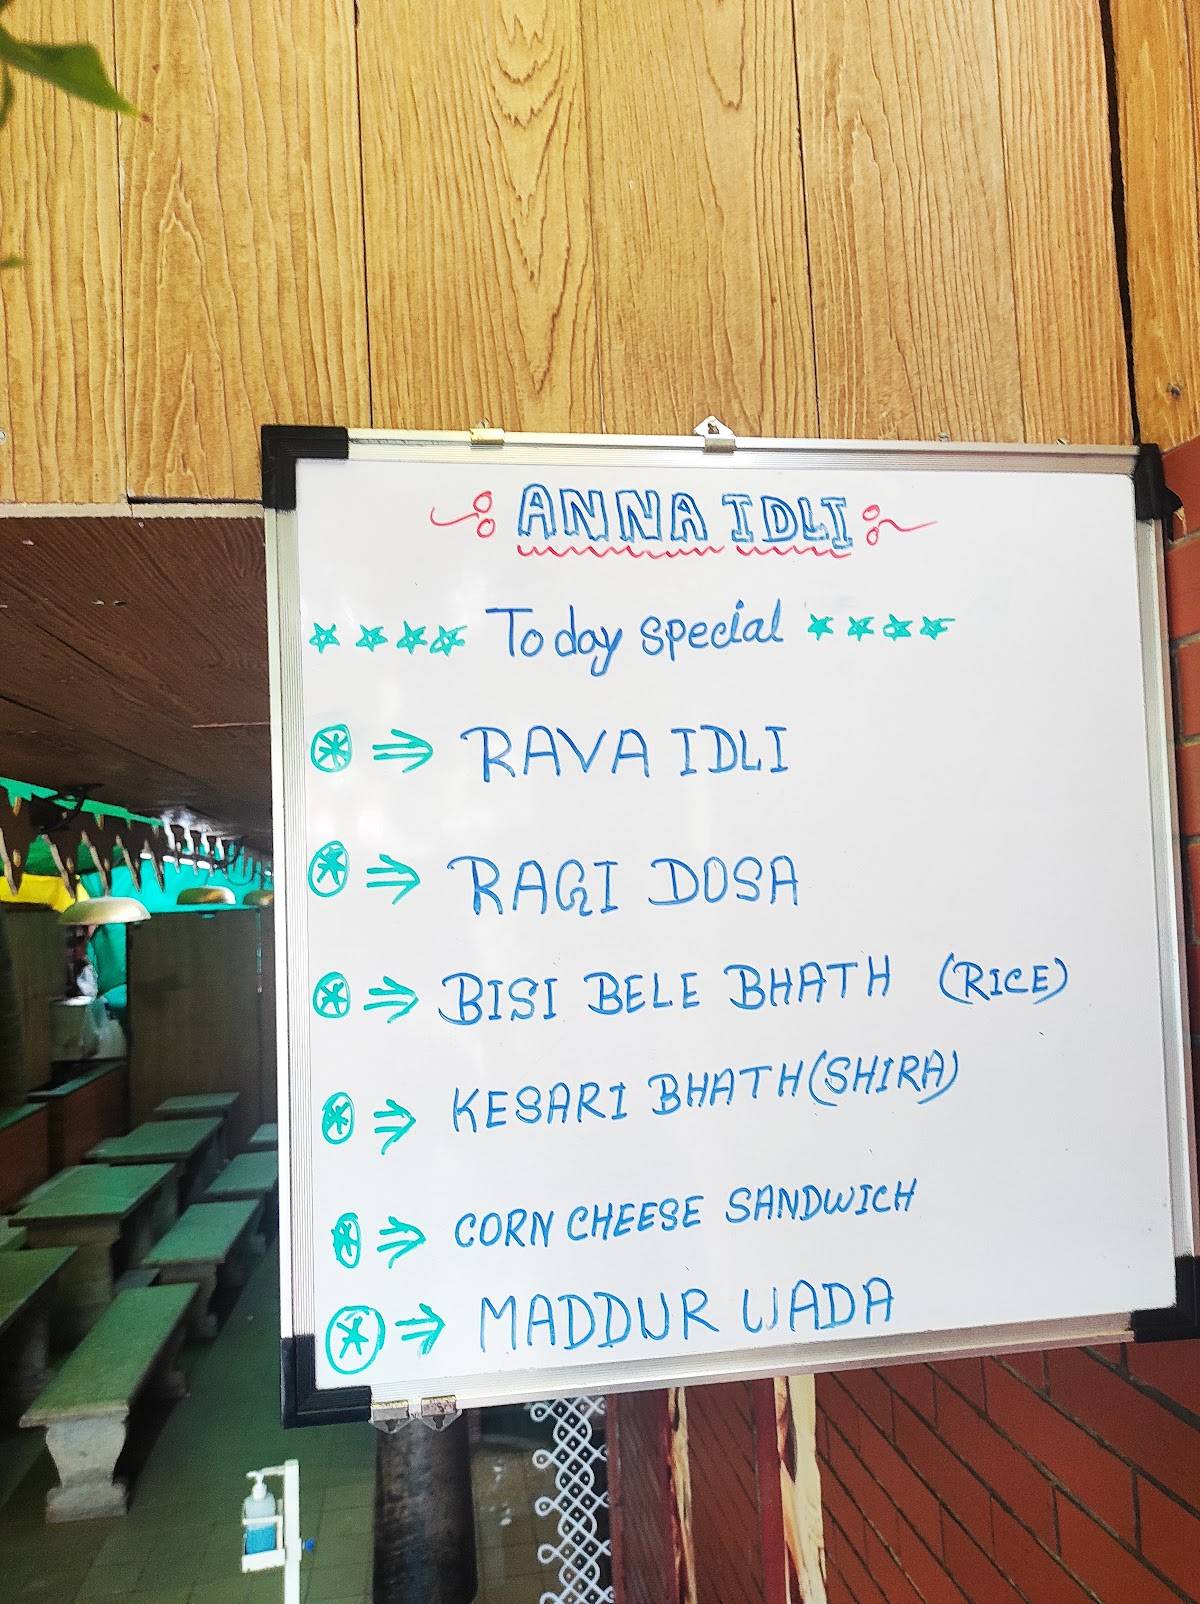 ANNA IDLI
Today special
RAVA IDLI
RAGI DOSA
BISI BELE BHATH (RICE)
KESARI BHATH (SHIRA)
CORN CHEESE SANDWICH
MADDUR WADA